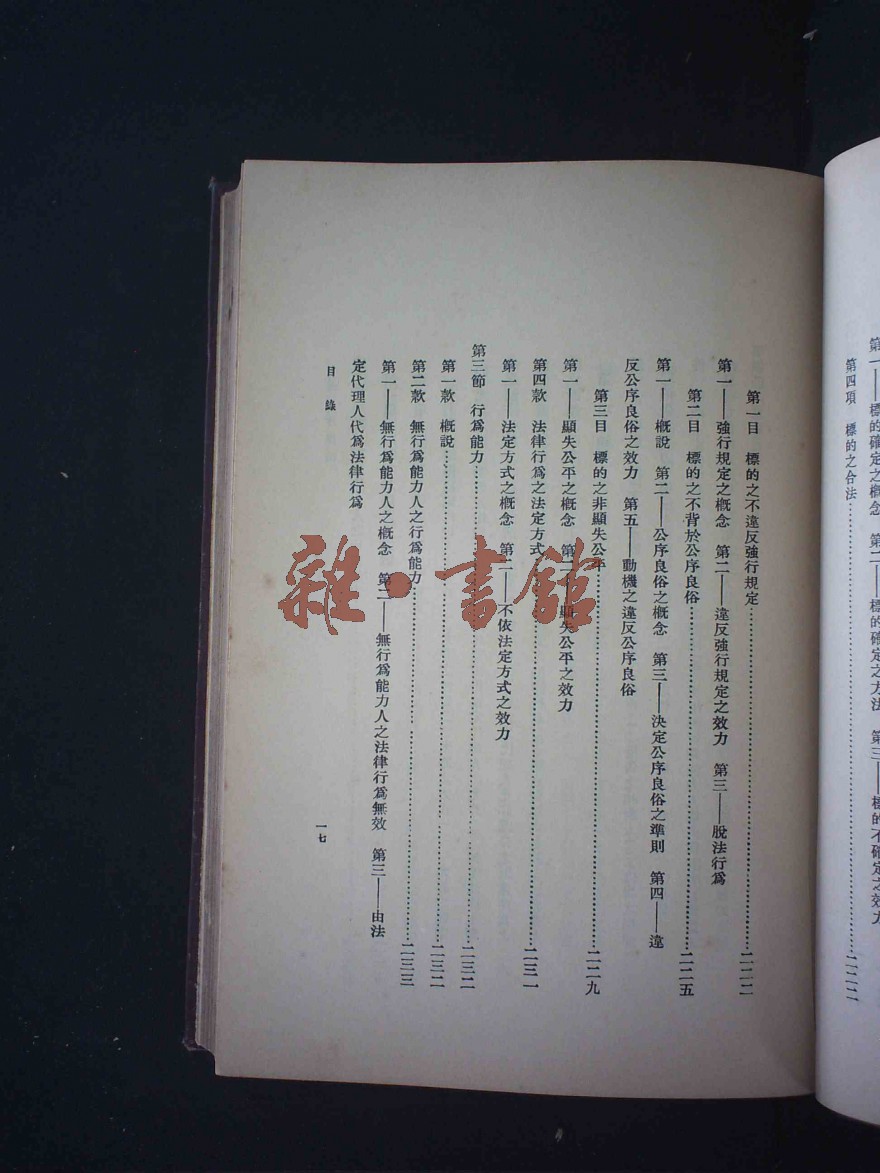 第一——標的確定之概念 第二——標的確定之方法 第三——標的不確定之效力
第四項 標的之合法……………二二二
第一目 標的之不違反強行規定……………二二二
第一——強行規定之概念 第二——違反強行規定之效力 第三——脫法行爲
第二目 標的之不背於公序良俗……………二二五
第一——概說 第二——公序良俗之概念 第三——決定公序良俗之準則 第四——違
反公序良俗之效力 第五——動機之違反公序良俗
第三目 標的之非顯失公平……………二二九
第一——顯失公平之概念 第二——顯失公平之效力
第四款 法律行爲之法定方式……………二三一
第一——法定方式之概念 第二——不依法定方式之效力
第三節 行爲能力……………二三二
第一款 概說……………二三二
第二款 無行爲能力人之行爲能力……………二三三
第一——無行爲能力人之概念 第二——無行爲能力人之法律行爲無效 第三——由法
定代理人代爲法律行爲
目錄 一七
雜·書館